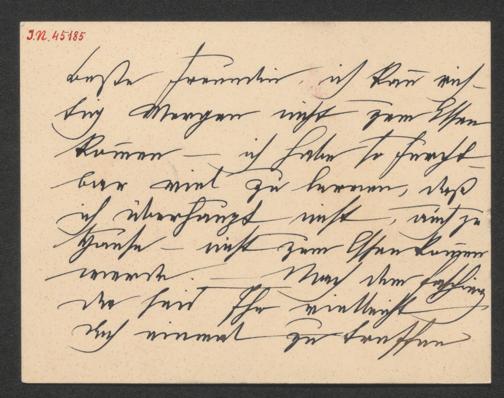 I.N. 45185
beste Freundin, ich kann rich-
tig Morgen nicht zum Essen
kommen – ich habe so furcht-
bar viel zu lernen, daß
ich überhaupt nicht, auch zu
Hause – nicht zum Essen kommen
werde. – Nach dem Fasching
da seid Ihr vielleicht
doch einmal zu treffen